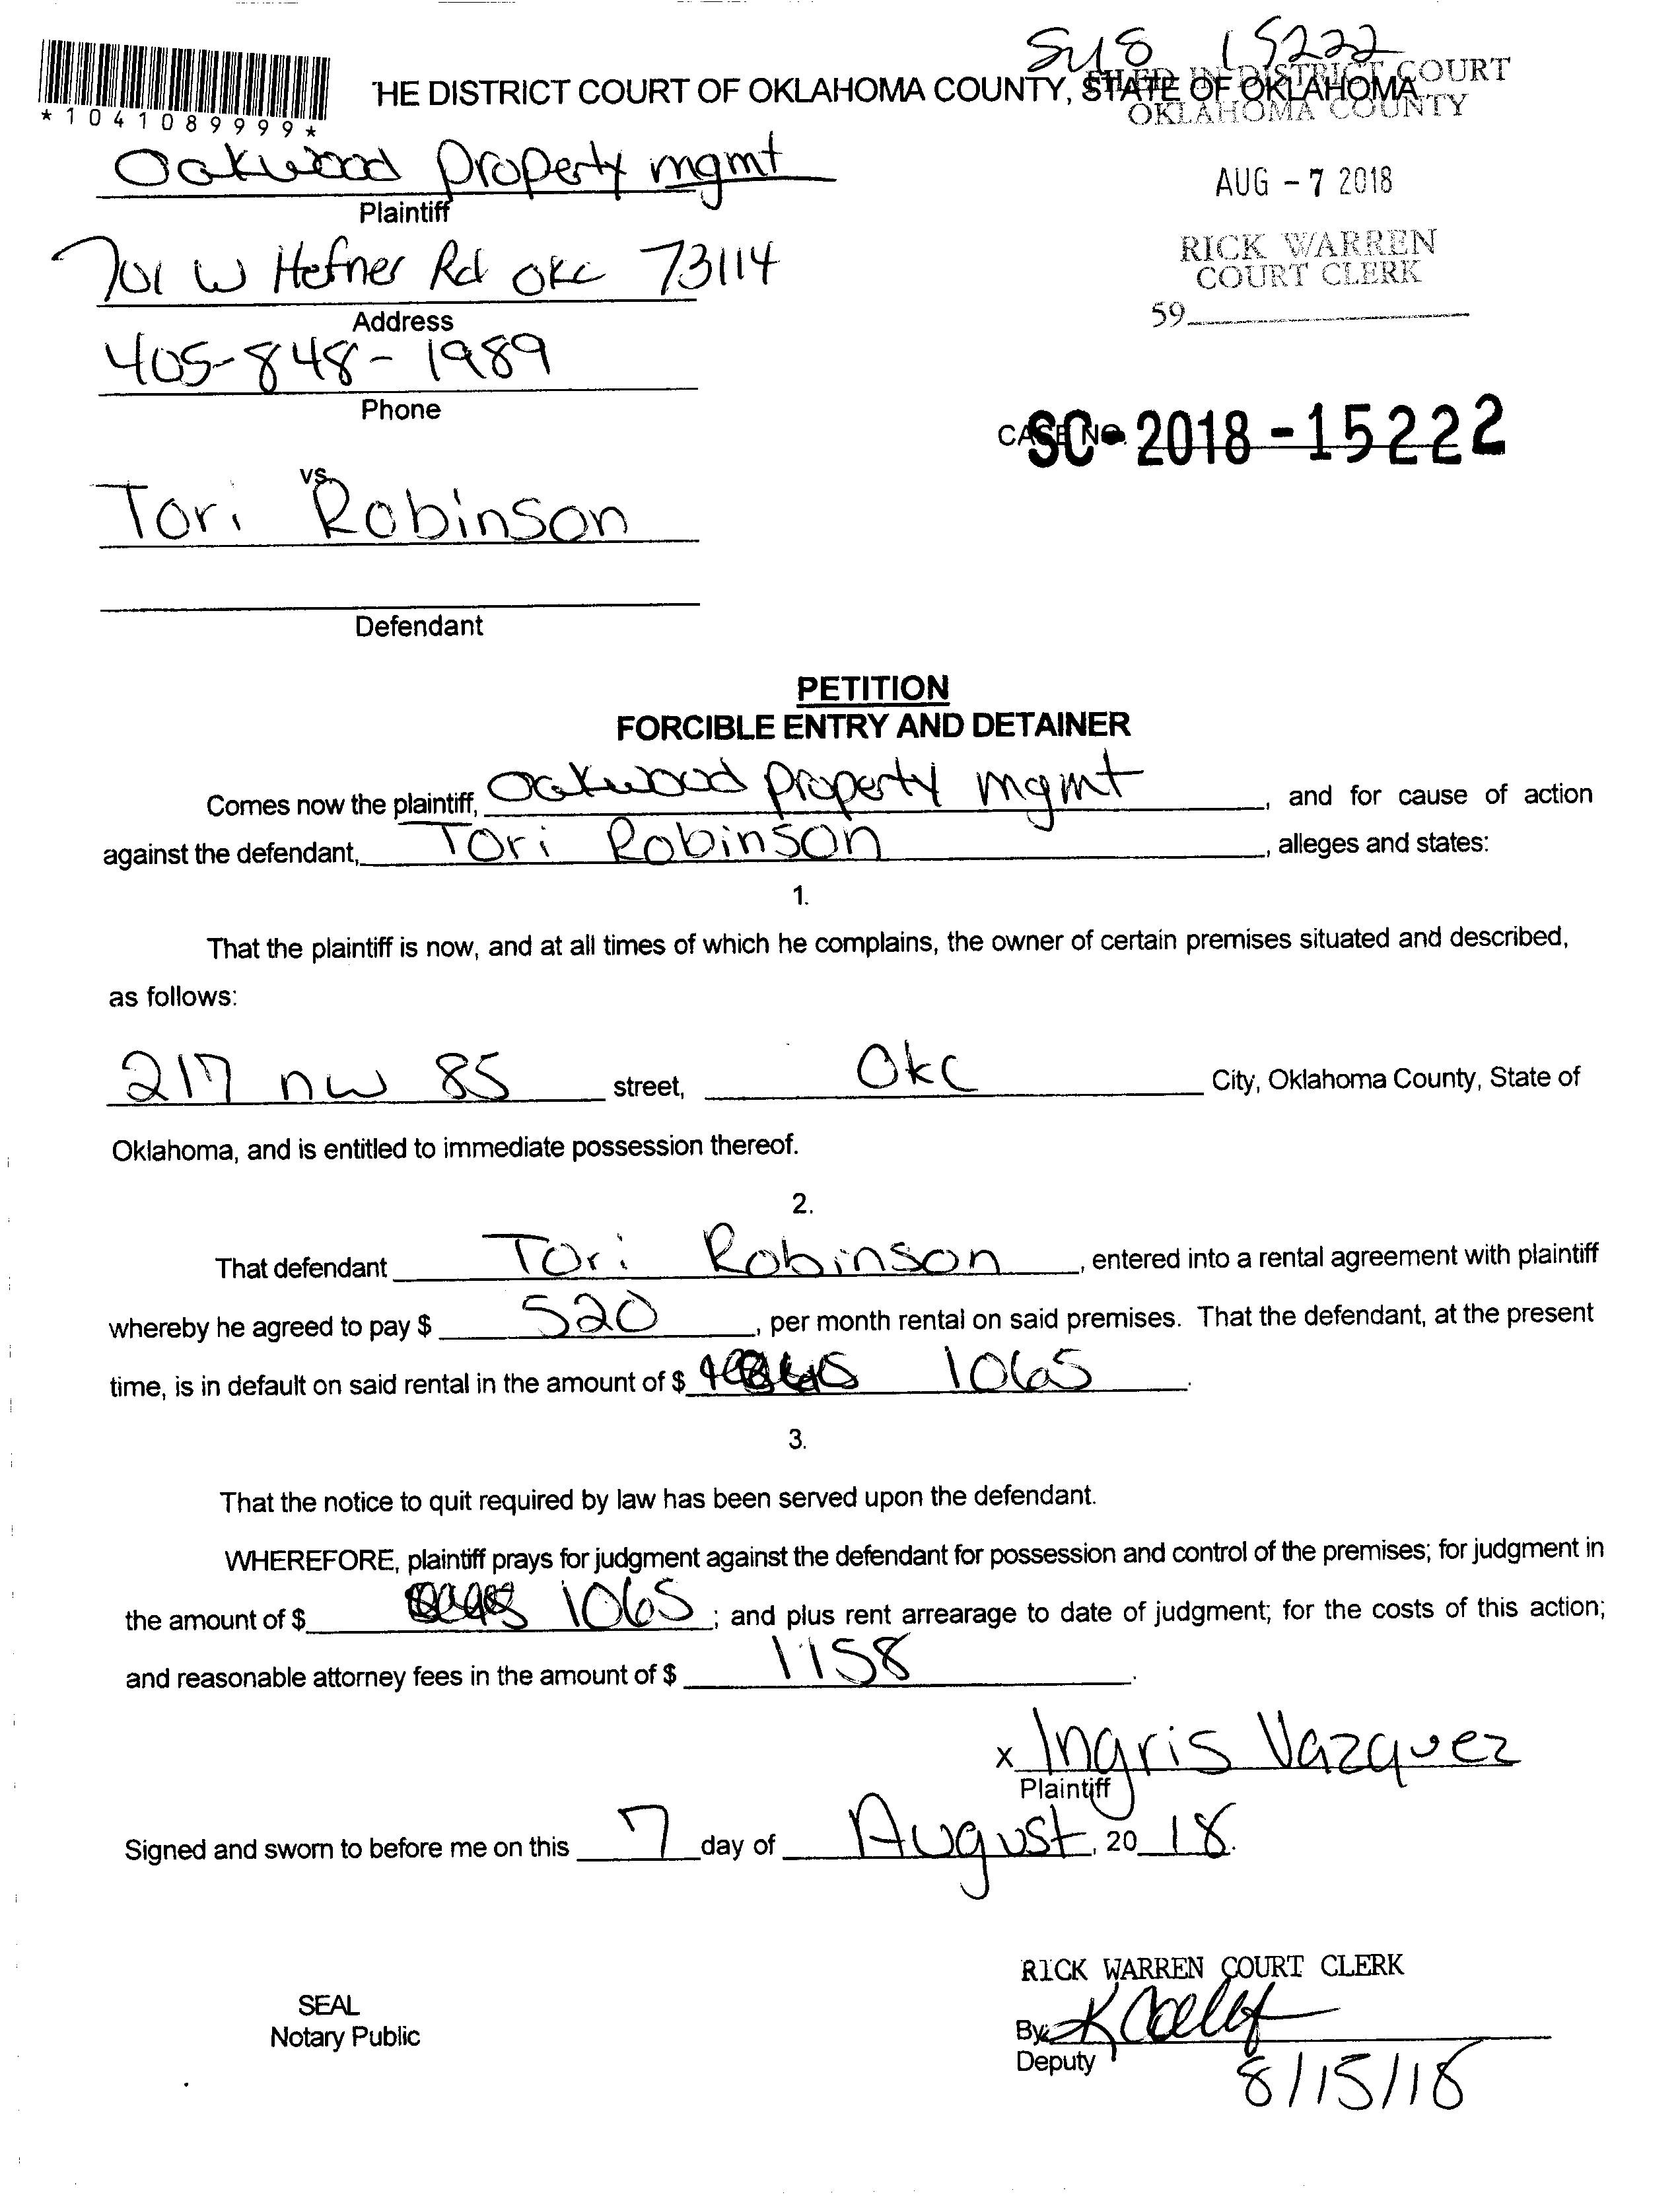 SM8 15222
THE DISTRICT COURT OF OKLAHOMA COUNTY, STATE OF OKLAHOMA
FILED IN DISTRICT COURT
OKLAHOMA COUNTY
*1041089999*
Oakwood property mgmt
Plaintiff
AUG - 7 2018
701 W Hefner Rd OKC 73114
Address
RICK WARREN
COURT CLERK
59
405-848-1989
Phone
CASE NO. SC-2018-15222
vs.
Tori Robinson
Defendant
PETITION
FORCIBLE ENTRY AND DETAINER
Comes now the plaintiff, Oakwood property mgmt, and for cause of action
against the defendant, Tori Robinson, alleges and states:
1.
That the plaintiff is now, and at all times of which he complains, the owner of certain premises situated and described,
as follows:
217 nw 85 street, OKC City, Oklahoma County, State of
Oklahoma, and is entitled to immediate possession thereof.
2.
That defendant Tori Robinson, entered into a rental agreement with plaintiff
whereby he agreed to pay $ 520, per month rental on said premises. That the defendant, at the present
time, is in default on said rental in the amount of $ 1065.
3.
That the notice to quit required by law has been served upon the defendant.
WHEREFORE, plaintiff prays for judgment against the defendant for possession and control of the premises; for judgment in
the amount of $ 1065; and plus rent arrearage to date of judgment; for the costs of this action;
and reasonable attorney fees in the amount of $ 1158.
x Ingris Vazquez
Plaintiff
Signed and sworn to before me on this 7 day of August, 20 18.
RICK WARREN COURT CLERK
SEAL
Notary Public
By:
Deputy
8/15/18